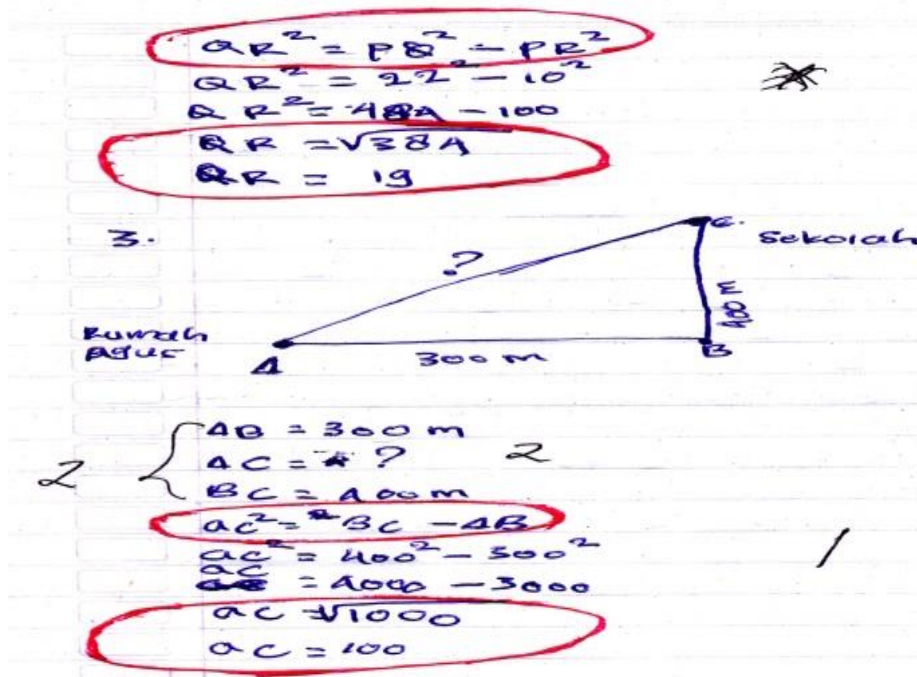 QR² = PQ² - PR²
QR² = 22² - 10²
QR² = 484 - 100
QR = √384
QR = 19
3.
C.
Sekolah
?
400 m
Rumah
Agus
A
300 m
B
AB = 300 m
2
AC = ?
2
BC = 400 m
ac² = BC - AB
ac² = 400² - 300²
ac = 4000 - 3000
1
ac = √1000
ac = 100